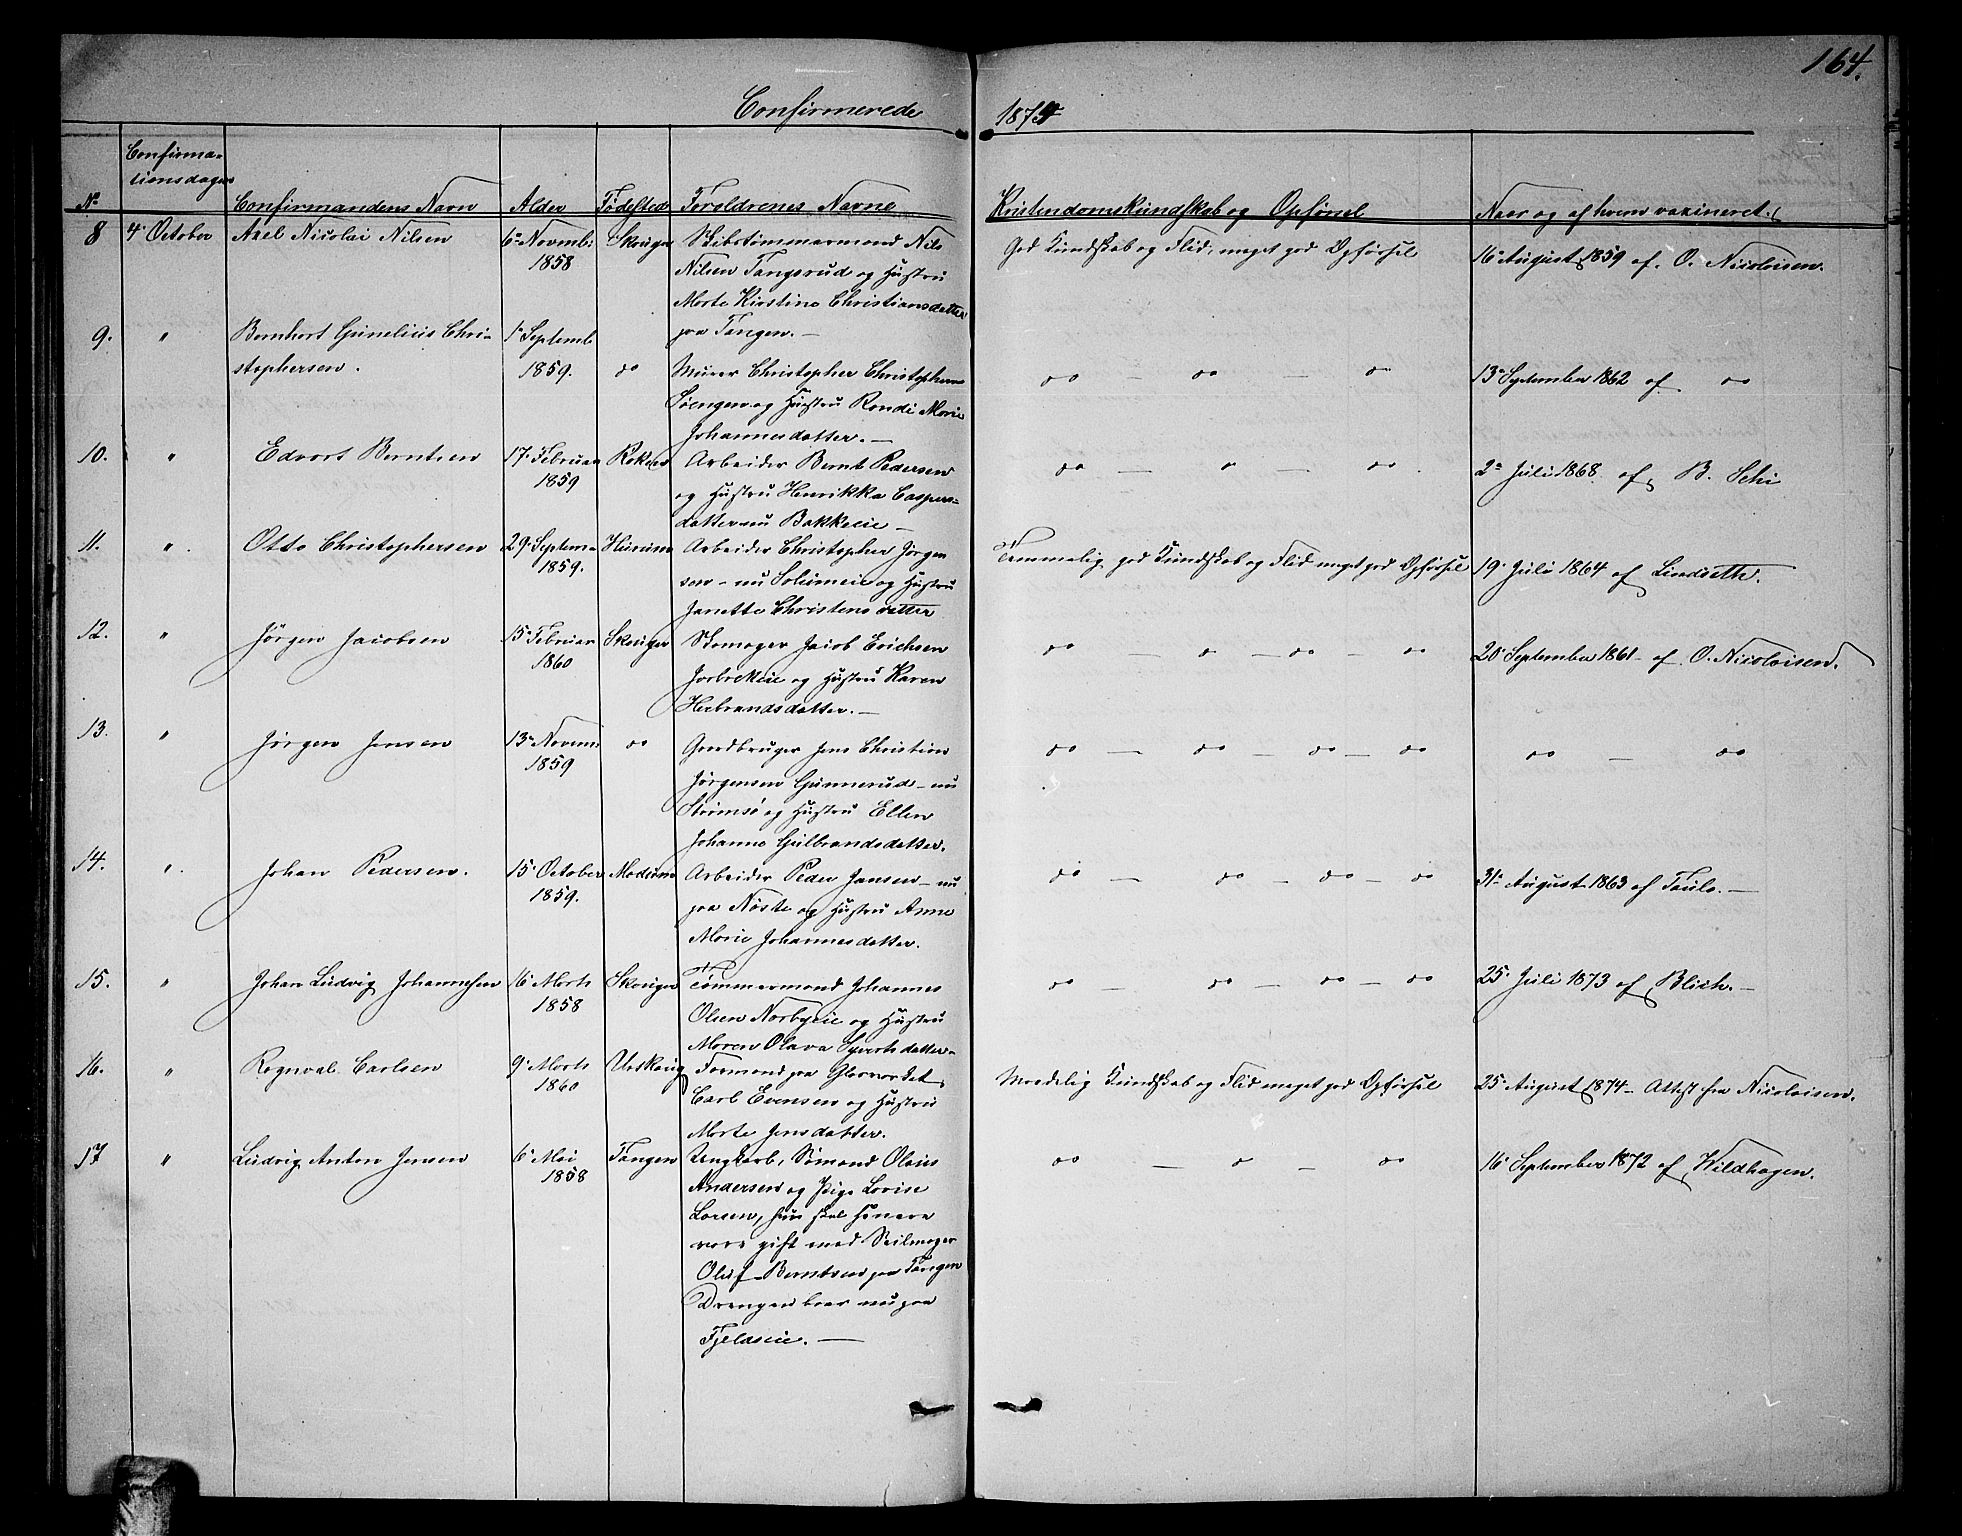 164.
Confirmerede 1874
No
Confirma-
tionsdagen
Confirmandens Navn
Alder
Fødested
Foreldrenes Navne
Kristendomskundskab og Opførsel
Naar og af hvem vaxineret.
8 4 October Axel Nicolai Nilsen 6 Novemb: 1858 Skouger
Skibstømmermand Nils
Nilsen Tangsrud og Hustru
Marte Kirstine Christiansdatter
paa Tangen.
God Kundskab og Flid, meget god Opførsel
16 August 1859 af O. Nicolaisen.
9. " Bernhart Gunelius Chri-
stophersen.
1 Septemb 1859. do
Murer Christopher Christophersen
Søengen og Hustru Randi Marie
Johannesdatter.
do — do — do
13 September 1862 af do
10. " Edvart Berntsen 17 Februar 1859 Røken
Arbeider Bernt Pedersen
og Hustru Henrikka Caspers-
datter nu Bakkeeie
do — do — do
2 Juli 1868 af B. Schi
11. " Otto Christophersen 29 Septem- 1859. Hurum
Arbeider Christopher Jørgen
sen nu Solumeie og Hustru
Janette Christensdatter
Temmelig god Kundskab og Flid meget god Opførsel
19 Juli 1864 af Lindseth.
12. " Jørgen Jacobsen 15 Februar 1860 Skouger
Skomager Jacob Erichsen
Jarbrekeie og Hustru Karen
Herbrandsdatter.
do — do — do — do
20 September 1861 af O. Nicolaisen.
13. " Jørgen Jensen 13 Novem: 1859 do
Gaardbruger Jens Christian
Jørgensen Gunnerud nu
Strømsø og Hustru Ellen
Johanne Gulbrandsdatter.
do — do — do — do
do — do
14. " Johan Pedersen. 15 October 1859. Modum
Arbeider Peder Jansen nu
paa Nøste og Hustru Anne
Marie Johannesdatter.
do — do — do — do
31 August 1863 af Taulo.
15. " Johan Ludvig Johannesen 16 Marts 1858 Skouger
Tømmermand Johannes
Olsen Norbyeie og Hustru
Maren Olava Syvertsdatter
do — do — do — do
25 Juli 1873 af Blich.
16. " Ragnval Carlsen 9 Marts 1860 Urskoug
Formand paa Glasværket
Carl Evensen og Hustru
Marte Jensdatter.
Maadelig Kundskab og Flid meget god Opførsel
25 August 1874 Attest fra Nicolaisen.
17 " Ludvig Anton Jensen 6 Mai 1858 Tangen
Ungkarl, Sømand Olaus
Andersen og Pige Lovise
Larsen, hun skal senere
være gift med Seilmager
Oluf Berntsen paa Tangen
Drengen boer nu paa
Fjeldseie.
do — do — do
16 September 1872 af Wildhagen.